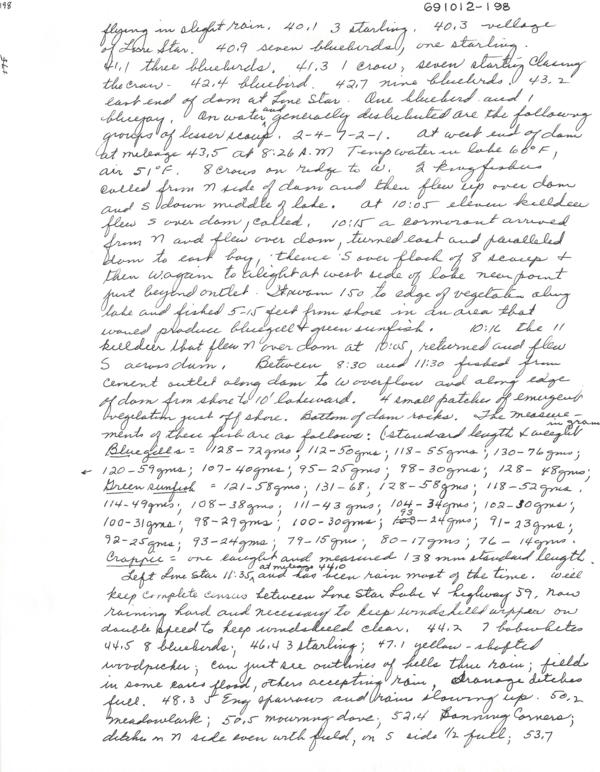 198
G91012-198
flying in slight rain. 40.1 3 starling. 40.3 village
of Lone Star. 40.9 seven bluebirds, one starling.
41.1 three bluebirds. 41.3 1 crow, seven starling chasing
the crow. 42.4 bluebird. 42.7 nine bluebirds. 43.2
east end of dam at Lone Star. One bluebird and 1
bluejay. On water and generally distributed are the following
groups of lesser scaup. 2-4-7-2-1. At west end of dam
at mileage 43.5 at 8:26 A.M. Temp water in lake 60°F,
air 51°F. 8 crows on ridge to W. 2 kingfishers
called from N side of dam and then flew up over dam
and S down middle of lake. At 10:05 eleven killdeer
flew S over dam, called. 10:15 a cormorant arrived
from N and flew over dam, turned east and paralleled
dam to east bay, thence S over flock of 8 scaup +
then W again to alight at west side of lake near point
just beyond outlet. It swam 150 to edge of vegetation along
lake and fished 5-15 feet from shore in an area that
would produce bluegill + green sunfish. 10:16 the 11
killdeer that flew N over dam at 10:05, returned and flew
S across dam. Between 8:30 and 11:30 fished from
cement outlet along dam to W overflow and along edge
of dam from shore to 10' lakeward. 4 small patches of emergent
vegetation just off shore. Bottom of dam rocks. The measure-
ments of these fish are as follows: (standard length + weight in grams
Bluegills = 128-72gms; 112-50gms; 118-55gms; 130-76gms;
120-59gms; 107-40gms; 95-25gms; 98-30gms; 128-48gms;
Green sunfish = 121-58gms; 131-68; 128-58gms; 118-52gms;
114-49gms; 108-38gms; 111-43gms; 104-34gms; 102-30gms;
100-31gms; 98-29gms; 100-30gms; 93-24gms; 91-23gms;
92-25gms; 93-24gms; 79-15gms; 80-17gms; 76-14gms.
Crappie = one caught and measured 138 mm standard length.
Left Lone Star 11:35, at mileage 44.0 and has been rain most of the time. Will
keep complete census between Lone Star Lake + highway 59. Now
raining hard and necessary to keep windshield wiper on
double speed to keep windshield clear. 44.2 7 bobwhites
44.5 8 bluebirds; 46.4 3 starling; 47.1 yellow-shafted
woodpicker; can just see outlines of hills thru rain; fields
in some cases flood, others accepting rain, Dranage ditches
full. 48.3 5 Eng sparrows and rain slowing up. 50.2
meadowlark; 50.5 mourning dove; 52.4 Banning Corners;
ditches on N side even with field, on S side 1/2 full; 53.7